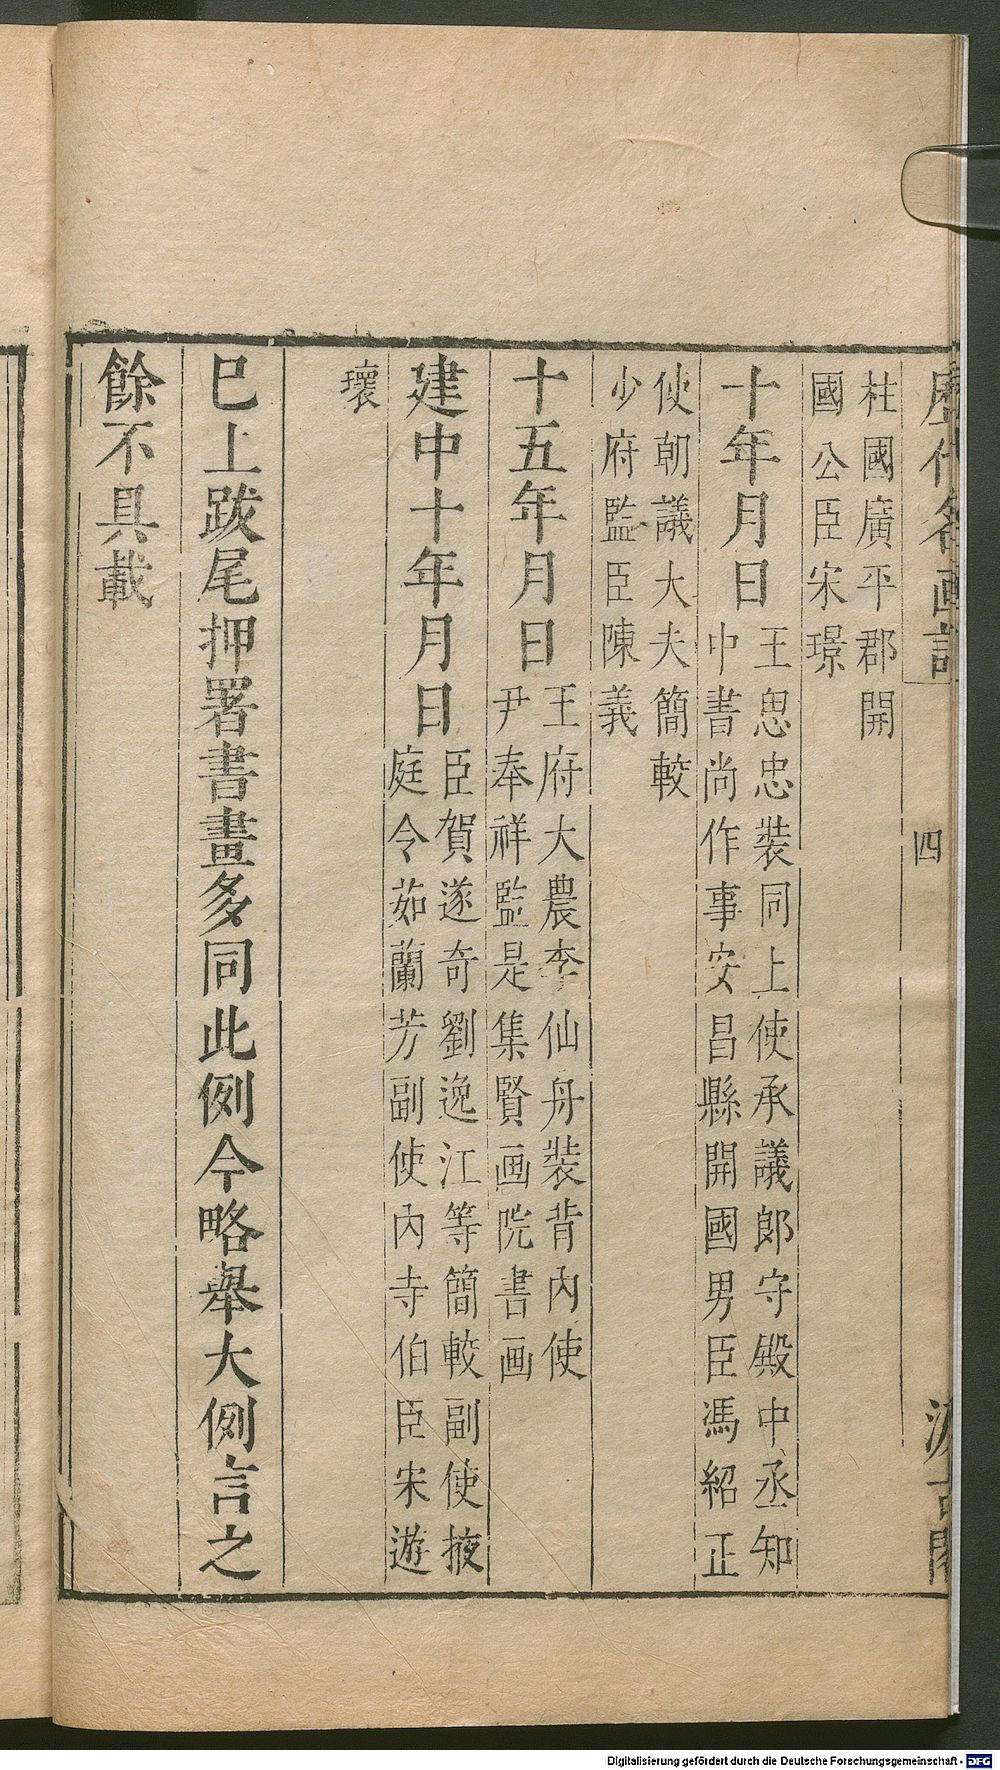 歷代名画記
四
汲古閣
柱國廣平郡開
國公臣宋璟
十年月日
王思忠裝同上使承議郎守殿中丞知
中書尚作事安昌縣開國男臣馮紹正
使朝議大夫簡較
少府監臣陳義
十五年月日
王府大農李仙舟裝背內使
尹奉祥監是集賢画院書画
建中十年月日
臣賀遂奇劉逸江等簡較副使掖
庭令茹蘭芳副使內寺伯臣宋遊
瓌
巳上跋尾押署書畫多同此例今略舉大例言之
餘不具載
Digitalisierung gefördert durch die Deutsche Forschungsgemeinschaft - DFG